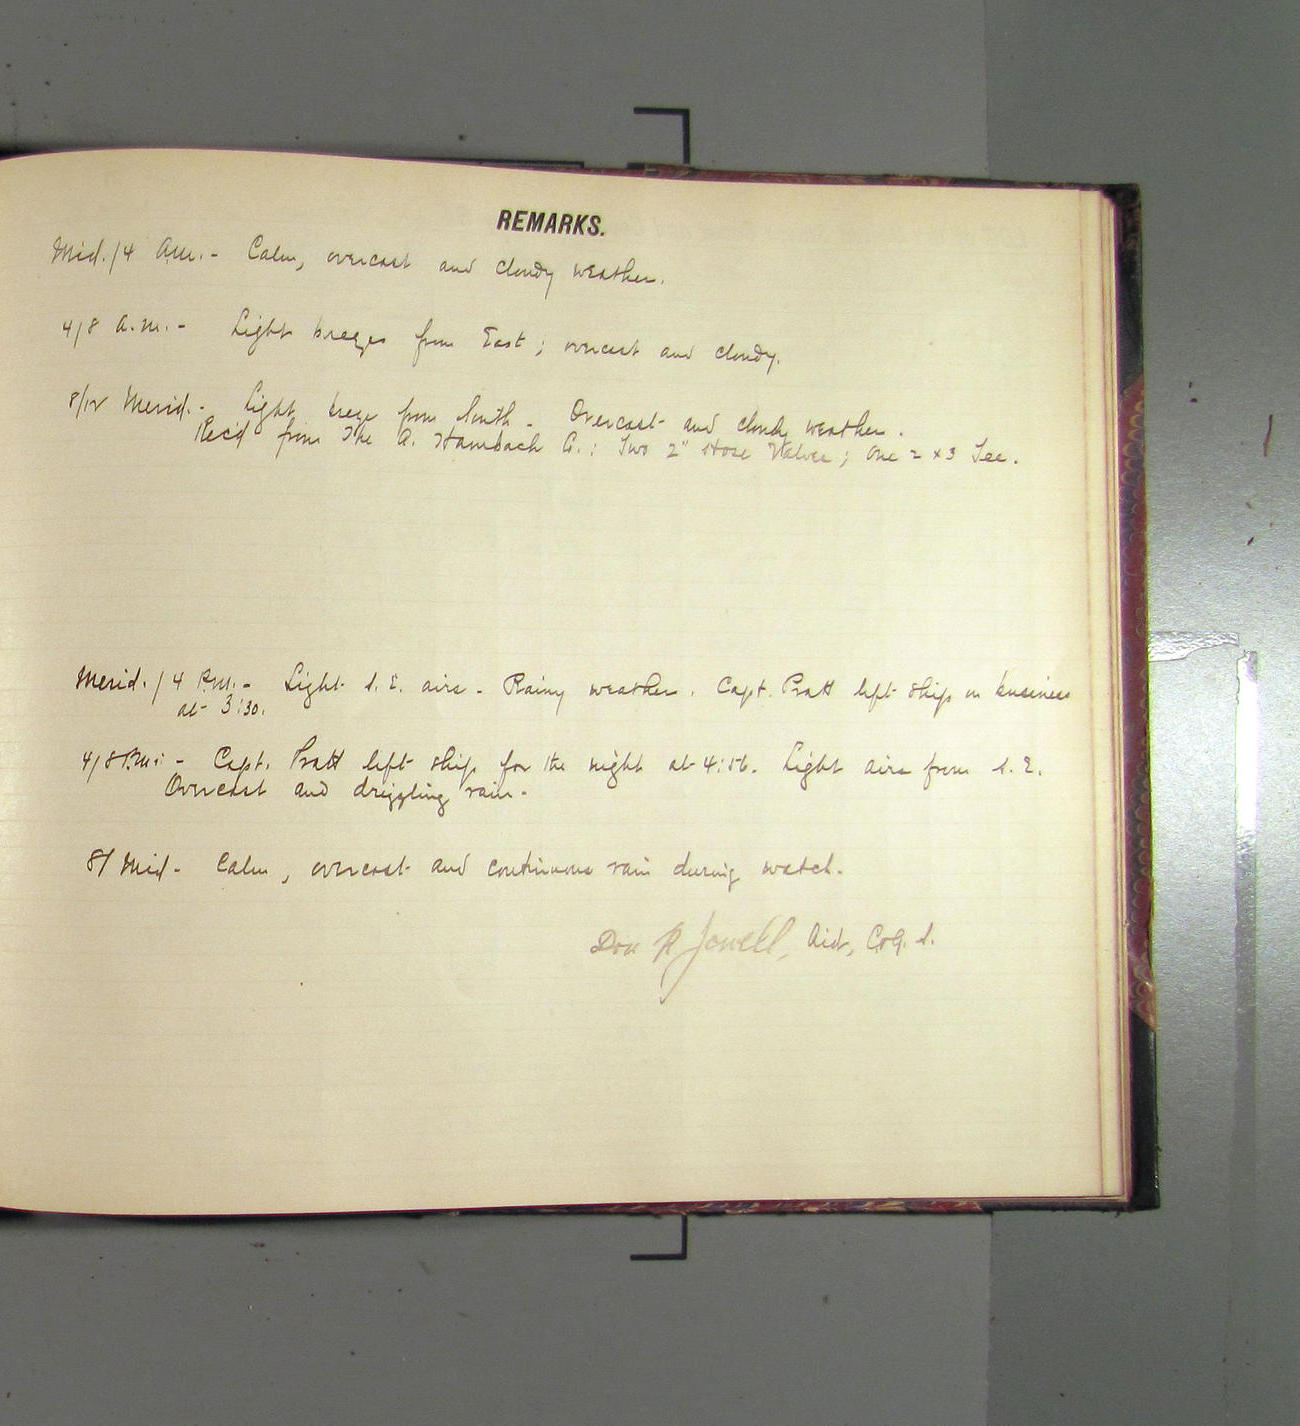 REMARKS.
Mid./4 A.M. - Calm, overcast and cloudy weather.
4/8 a.m. - Light breezes from East; overcast and cloudy.
8/12 Merid. - Light breeze from South - Overcast and cloudy weather.
Rec'd from The A. Hambach Co.: Two 2" Hose Valves; One 2 x 3 Tee.
Merid./4 P.M. - Light S.E. airs - Rainy weather. Capt. Pratt left ship on business
at 3:30.
4/8 P.M: - Capt. Pratt left ship for the night at 4:56. Light airs from S.E.
Overcast and drizzling rain -
8/ Mid - Calm, overcast and continuous rain during watch.
Don A Jewell, Aid, C&G. S.